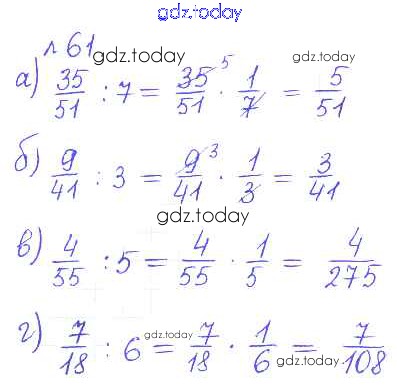 gdz.today
л 61
gdz.today
а) 35/51 : 7 = 35/51 5 · 1/7 = 5/51
б) 9/41 : 3 = 9/41 3 · 1/3 = 3/41
gdz.today
в) 4/55 : 5 = 4/55 · 1/5 = 4/275
г) 7/18 : 6 = 7/18 · 1/6 = 7/108
gdz.today
gdz.today